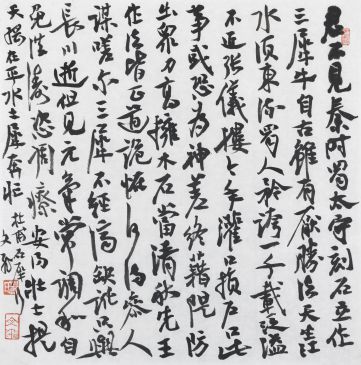 君不見秦時蜀太守刻石立作
三犀牛自古雖有厭勝法天生江
水須東流蜀人矜誇一千載泛溢
不近張儀樓今年灌口損戶口此
事或恐為神羞終藉隄防
出眾力高擁木石當清秋先王
作法皆正道詭怪何得參人
謀嗟爾三犀不經濟缺訛只與
長川逝但見元氣常調和自
免洪濤恣凋瘵安得壯士提
天綱再平水土犀奔茫
杜甫石犀行